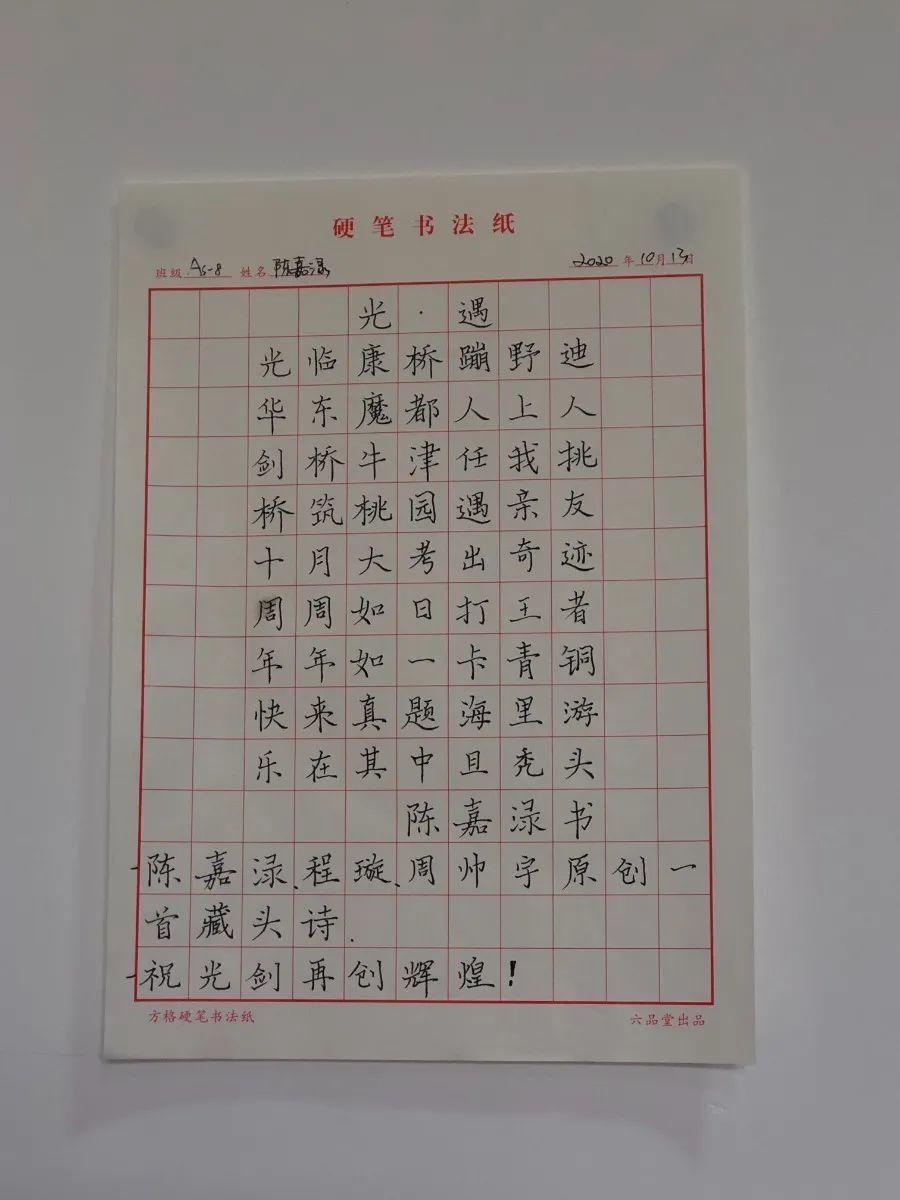 硬笔书法纸
班级 As-8 姓名 陈嘉渌 2020年10月13日
光·遇
光临康桥蹦野迪
华东魔都人上人
剑桥牛津任我挑
桥筑桃园遇亲友
十月大考出奇迹
周周如日打王者
年年如一卡青铜
快来真题海里游
乐在其中且秃头
陈嘉渌书
陈嘉渌、程璇、周帅宇原创一
首藏头诗.
祝光剑再创辉煌!
方格硬笔书法纸 六品堂出品